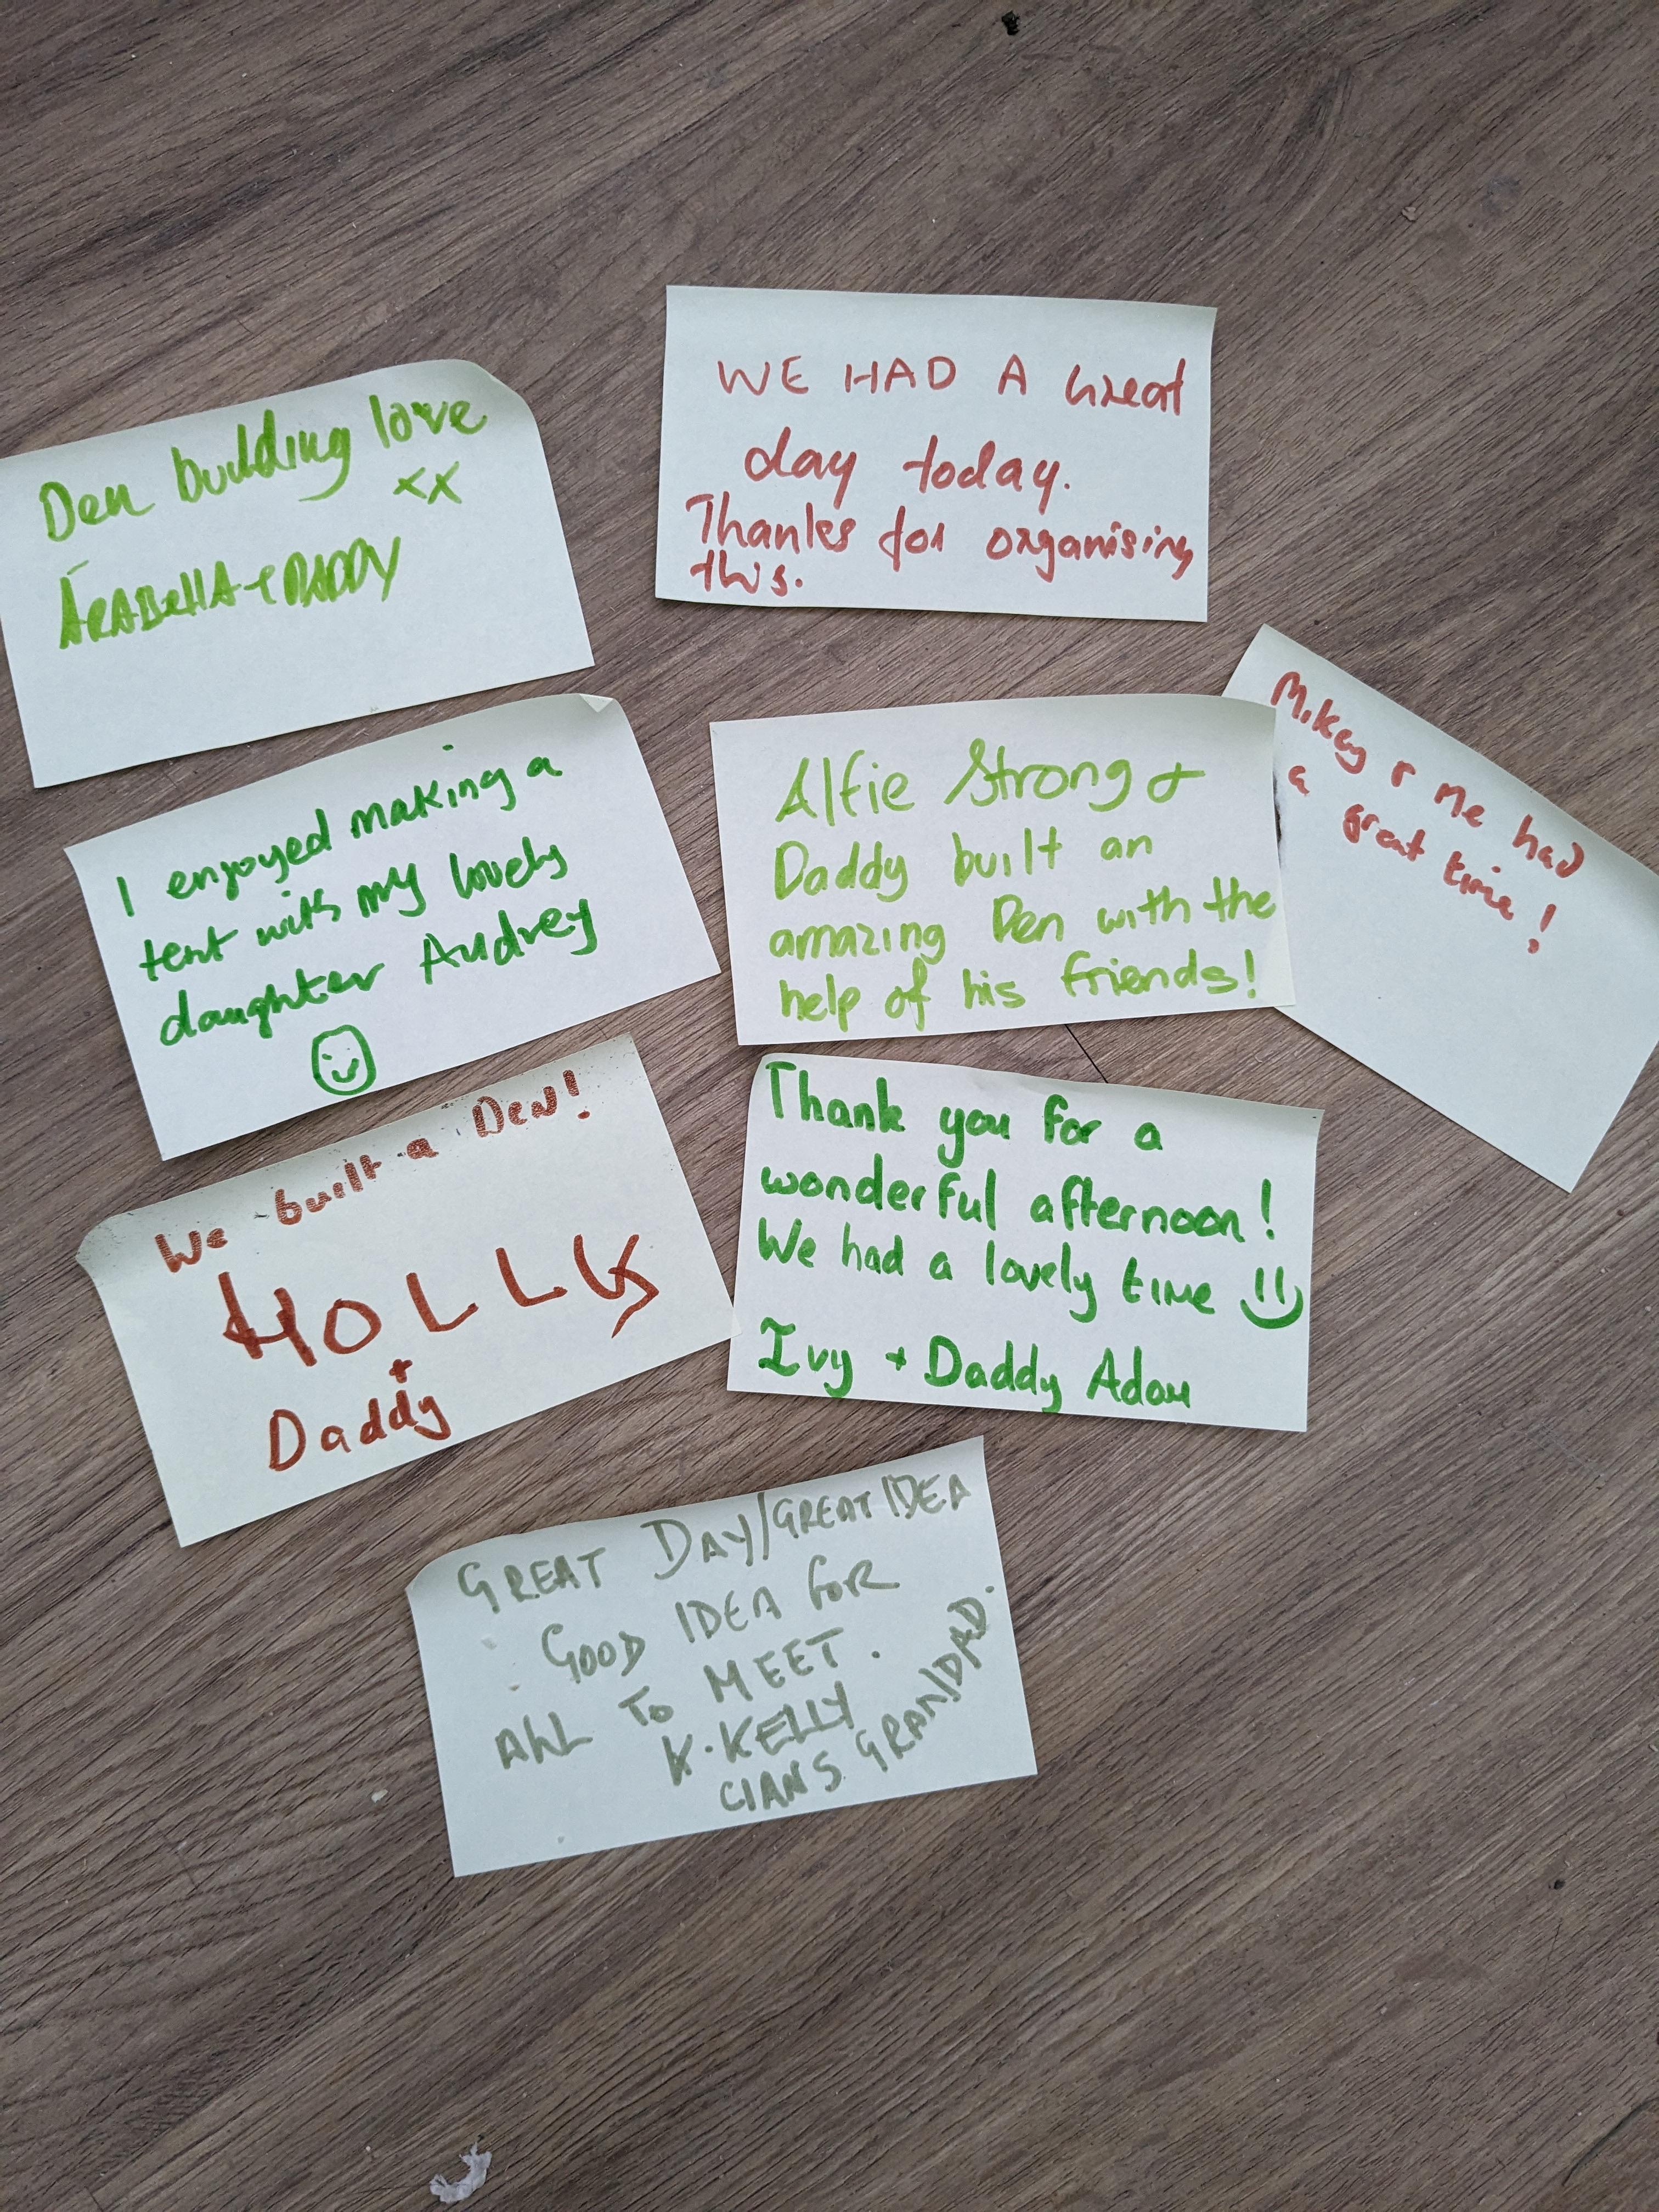 Den building love
xx
ARABELLA + DADDY
WE HAD A Great
day today.
Thanks for organising
this.
I enjoyed making a
tent with my lovely
daughter Audrey
Alfie Strong +
Daddy built an
amazing Den with the
help of his friends!
Mikey & Me had
a great time!
We built a Den!
HOLLY
+
Daddy
Thank you for a
wonderful afternoon!
We had a lovely time
Ivy + Daddy Adam
GREAT DAY/GREAT IDEA
GOOD IDEA FOR
ALL TO MEET.
K.KELLY
CIANS GRANDDAD.